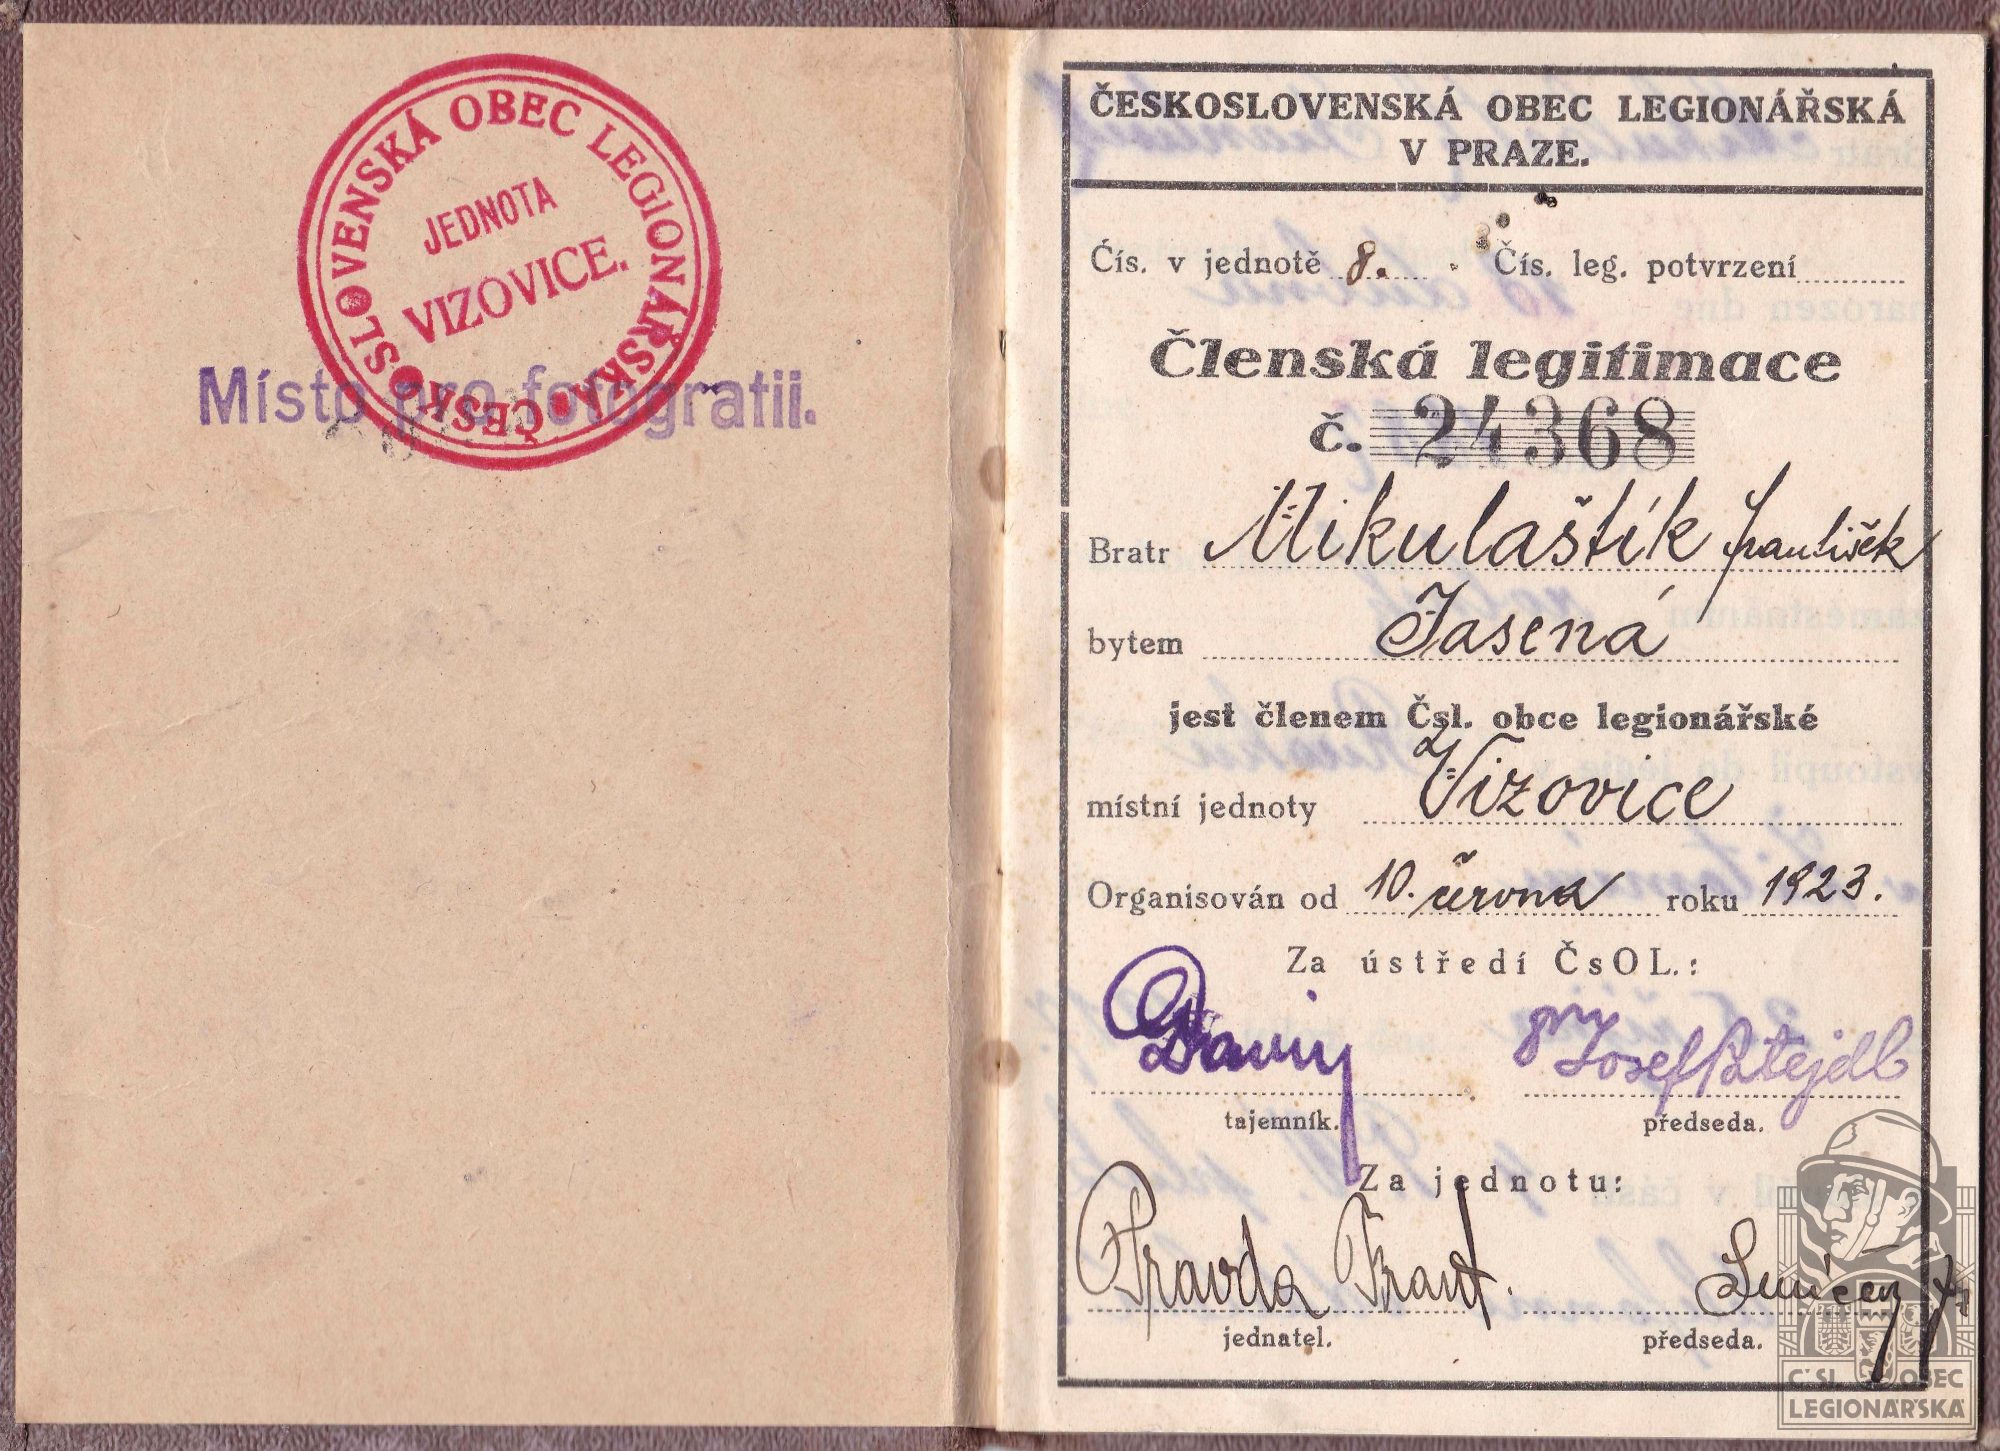 ČESKOSLOVENSKÁ OBEC LEGIONÁŘSKÁ
JEDNOTA
VIZOVICE.
Místo pro fotografii.
ČESKOSLOVENSKÁ OBEC LEGIONÁŘSKÁ
V PRAZE.
Čís. v jednotě 8. Čís. leg. potvrzení
Členská legitimace
č. 24368
Bratr Mikulaštík František
bytem Jasená
jest členem Čsl. obce legionářské
místní jednoty Vizovice
Organisován od 10. června roku 1923.
Za ústředí ČsOL.:
Josef Patejdl
tajemník. předseda.
Za jednotu:
Pravda Frant.
jednatel. předseda.
Č SL OBEC
LEGIONÁŘSKÁ